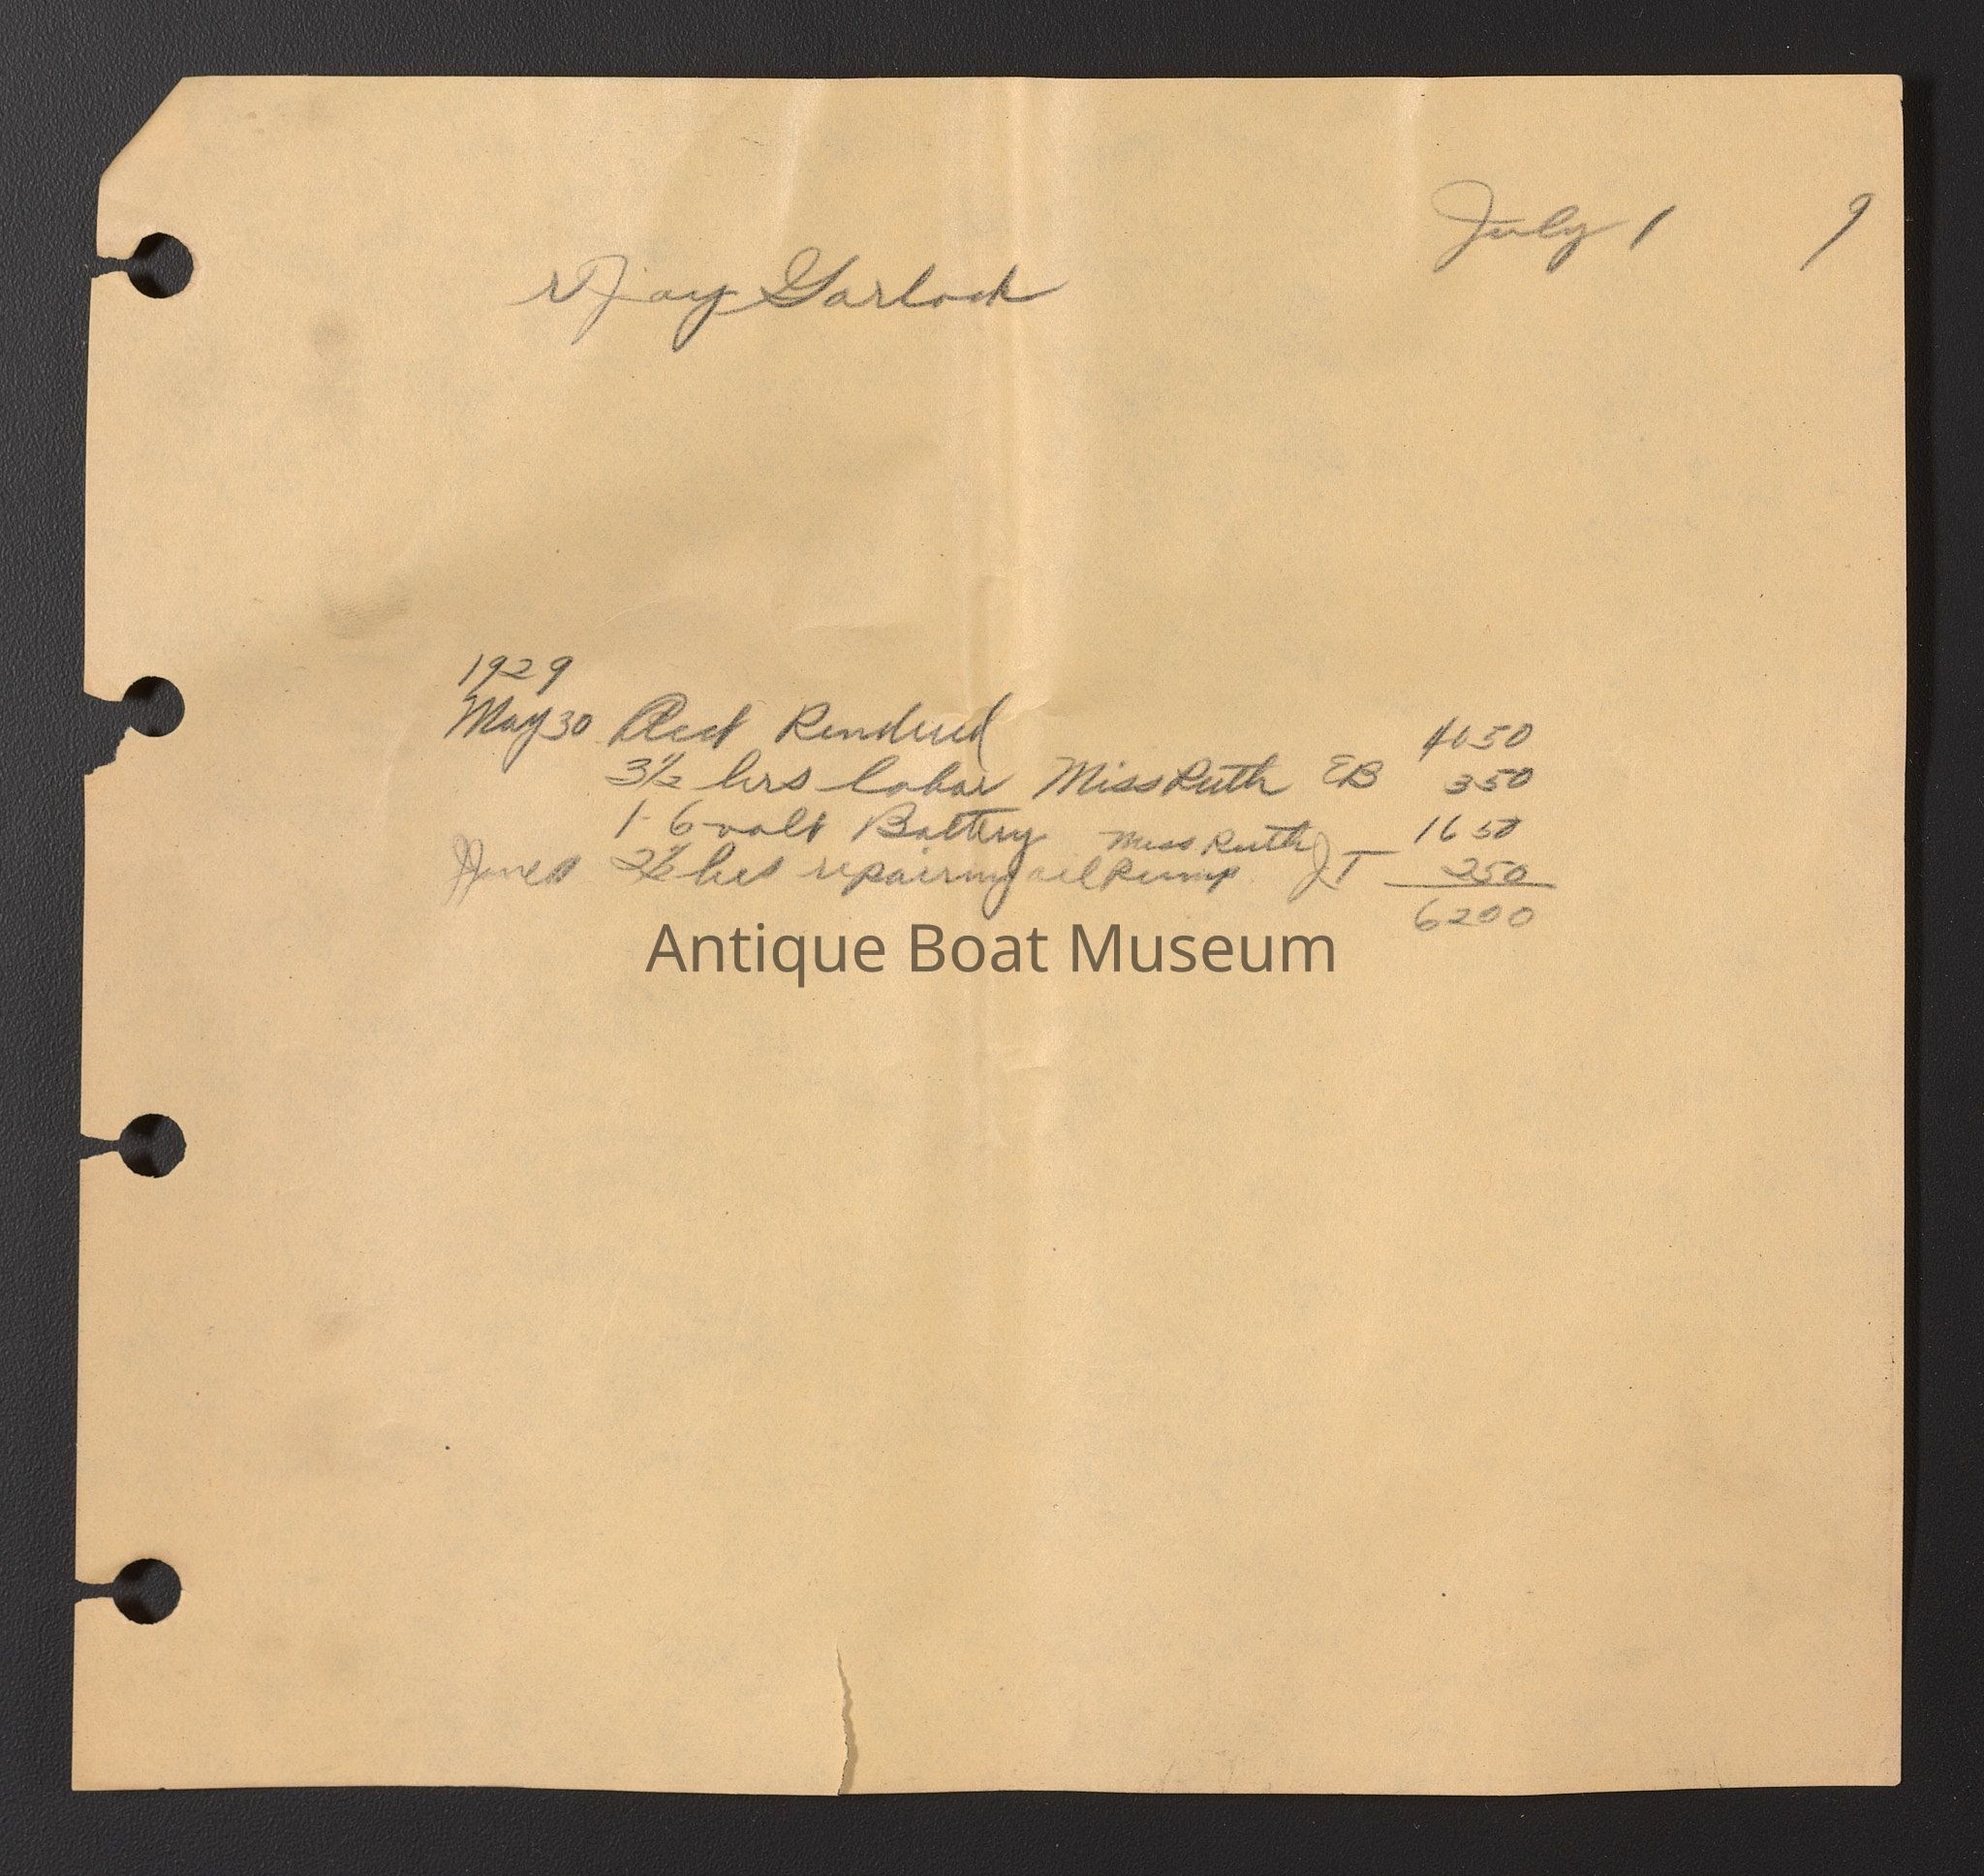 July 1 9
r Jay Garlock
1929
May 30 Acct Rendered 4050
3½ hrs labor Miss Ruth EB 350
1-6 volt Battery 1650
Miss Ruth
June 2½ hrs repairing oil Pump JT 250
6200
Antique Boat Museum